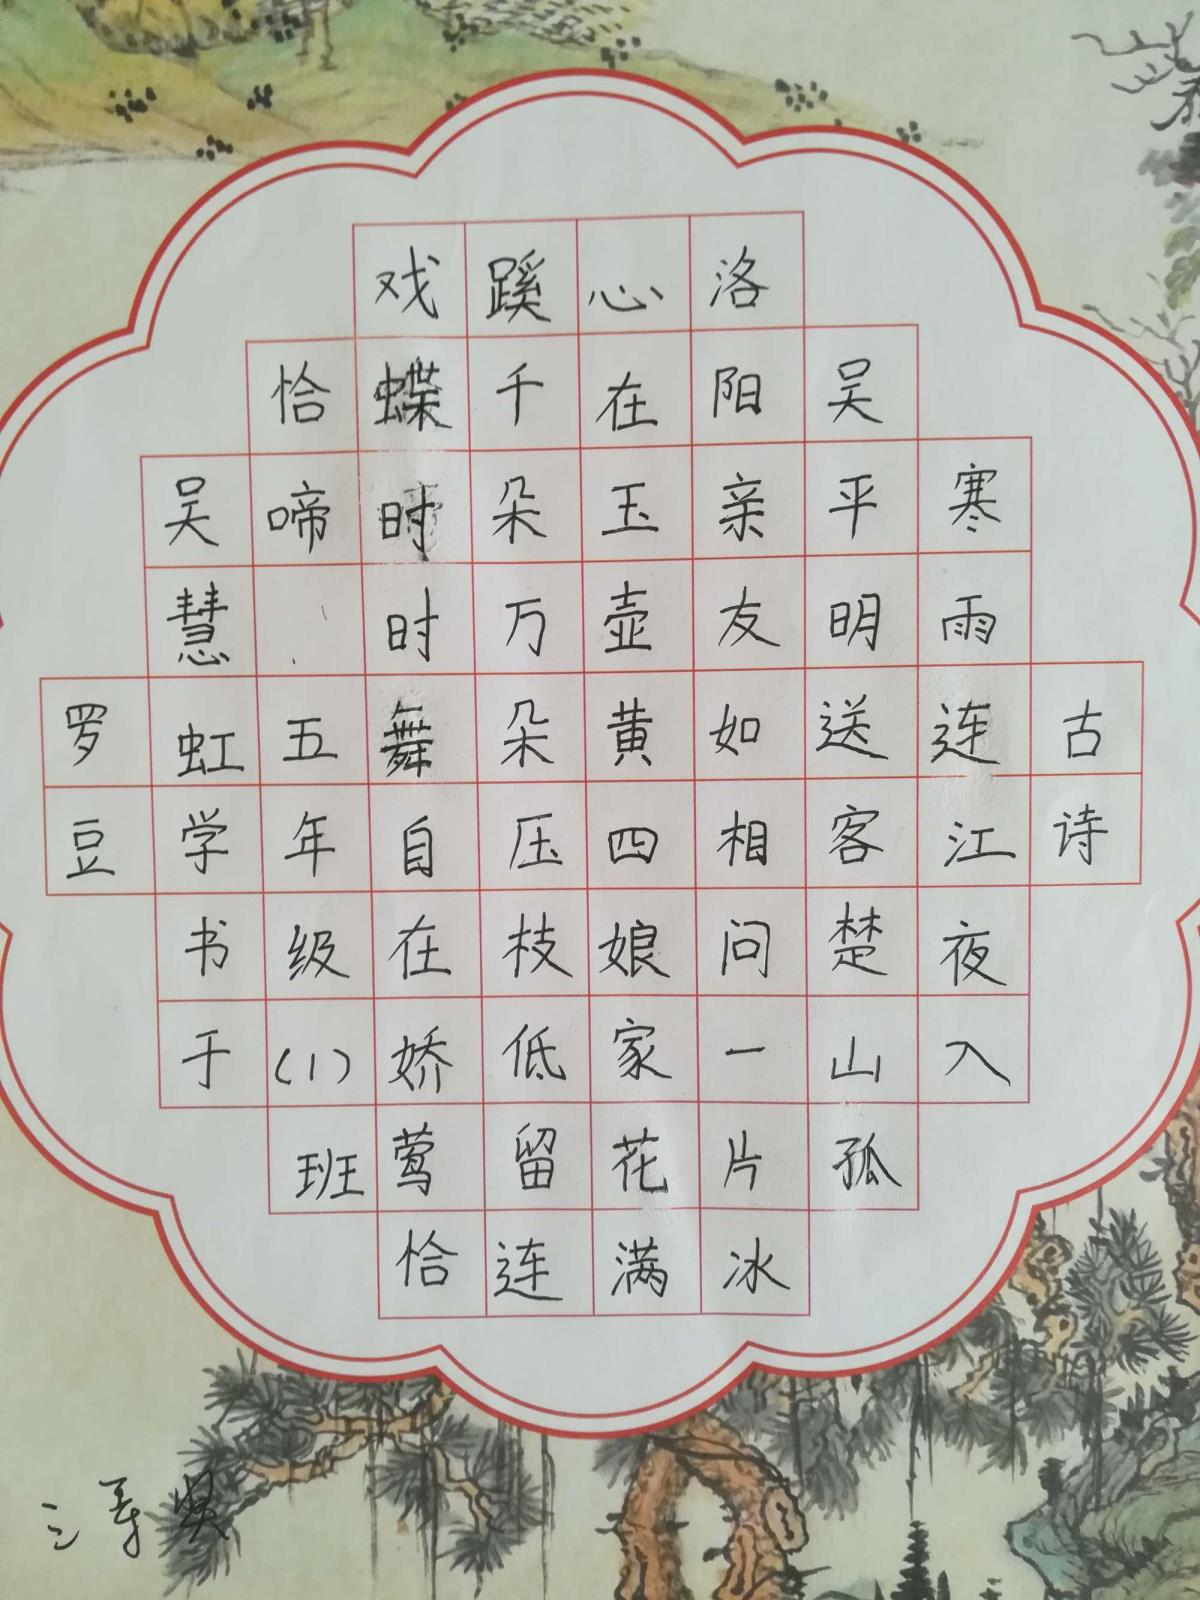 古诗
寒雨连江夜入
吴平明送客楚山孤
洛阳亲友如相问一片冰
心在玉壶黄四娘家花满
蹊千朵万朵压枝低留连
戏蝶时时舞自在娇莺恰
恰啼 五年级(1)班
吴慧虹学书于
罗豆